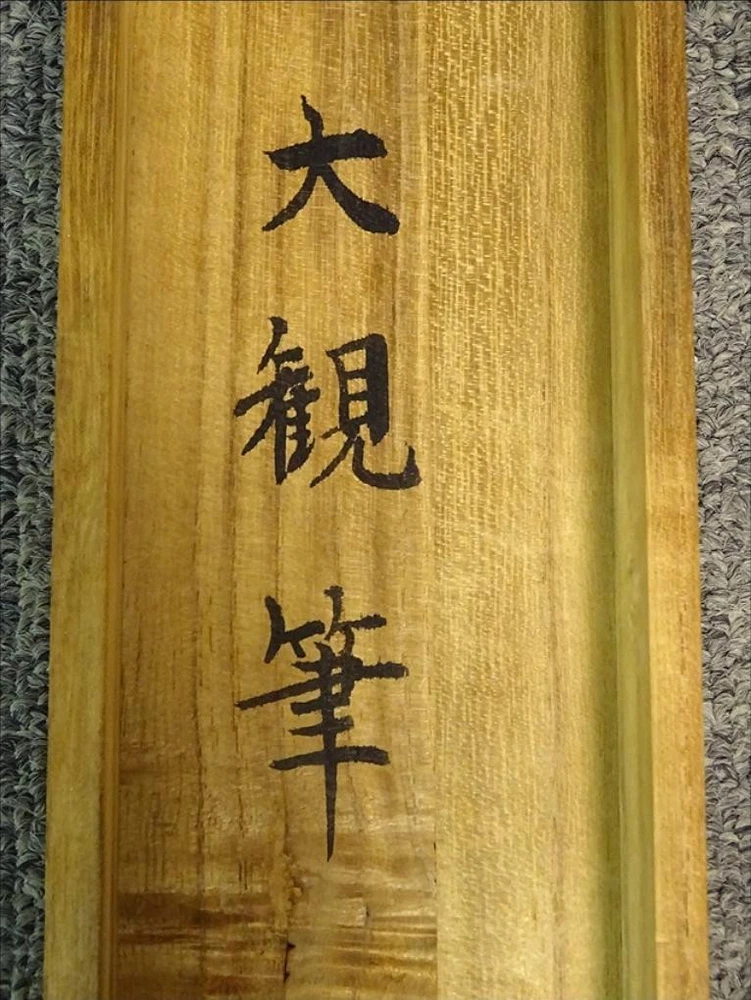 大観筆